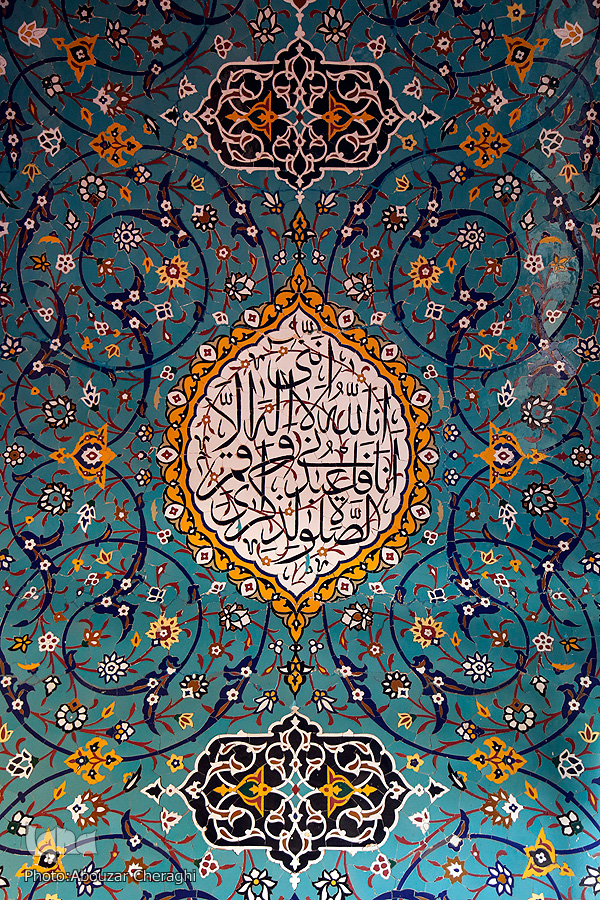 إنني
أنا الله لا إله إلا
أنا فاعبدني و أقم
الصلوة لذكري
Photo:Abouzar Cheraghi